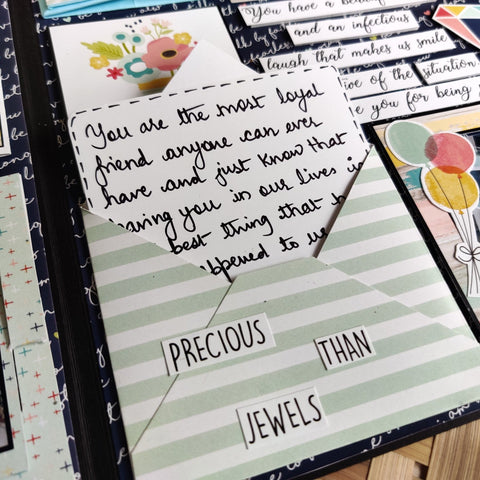 You have a
and an infectious
laugh that makes us smile
ive of the situation
e you for being
You are the most loyal
friend anyone can ever
have and just know that
aving you in our lives is
best thing that h
ppened to us
PRECIOUS THAN
JEWELS